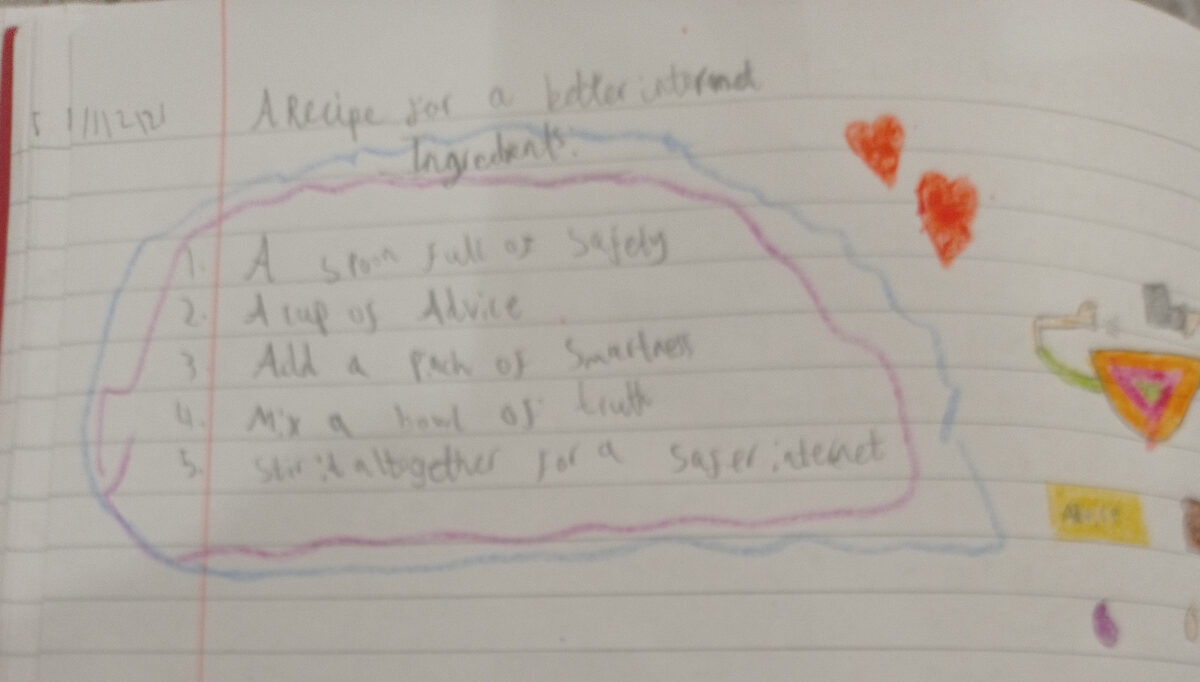 A Recipe for a better internet
Ingredients:
1. A spoon full of Safety
2. A cup of Advice
3. Add a Pach of Smartness
4. Mix a bowl of truth
5. Stir it altogether for a safer internet
Advice